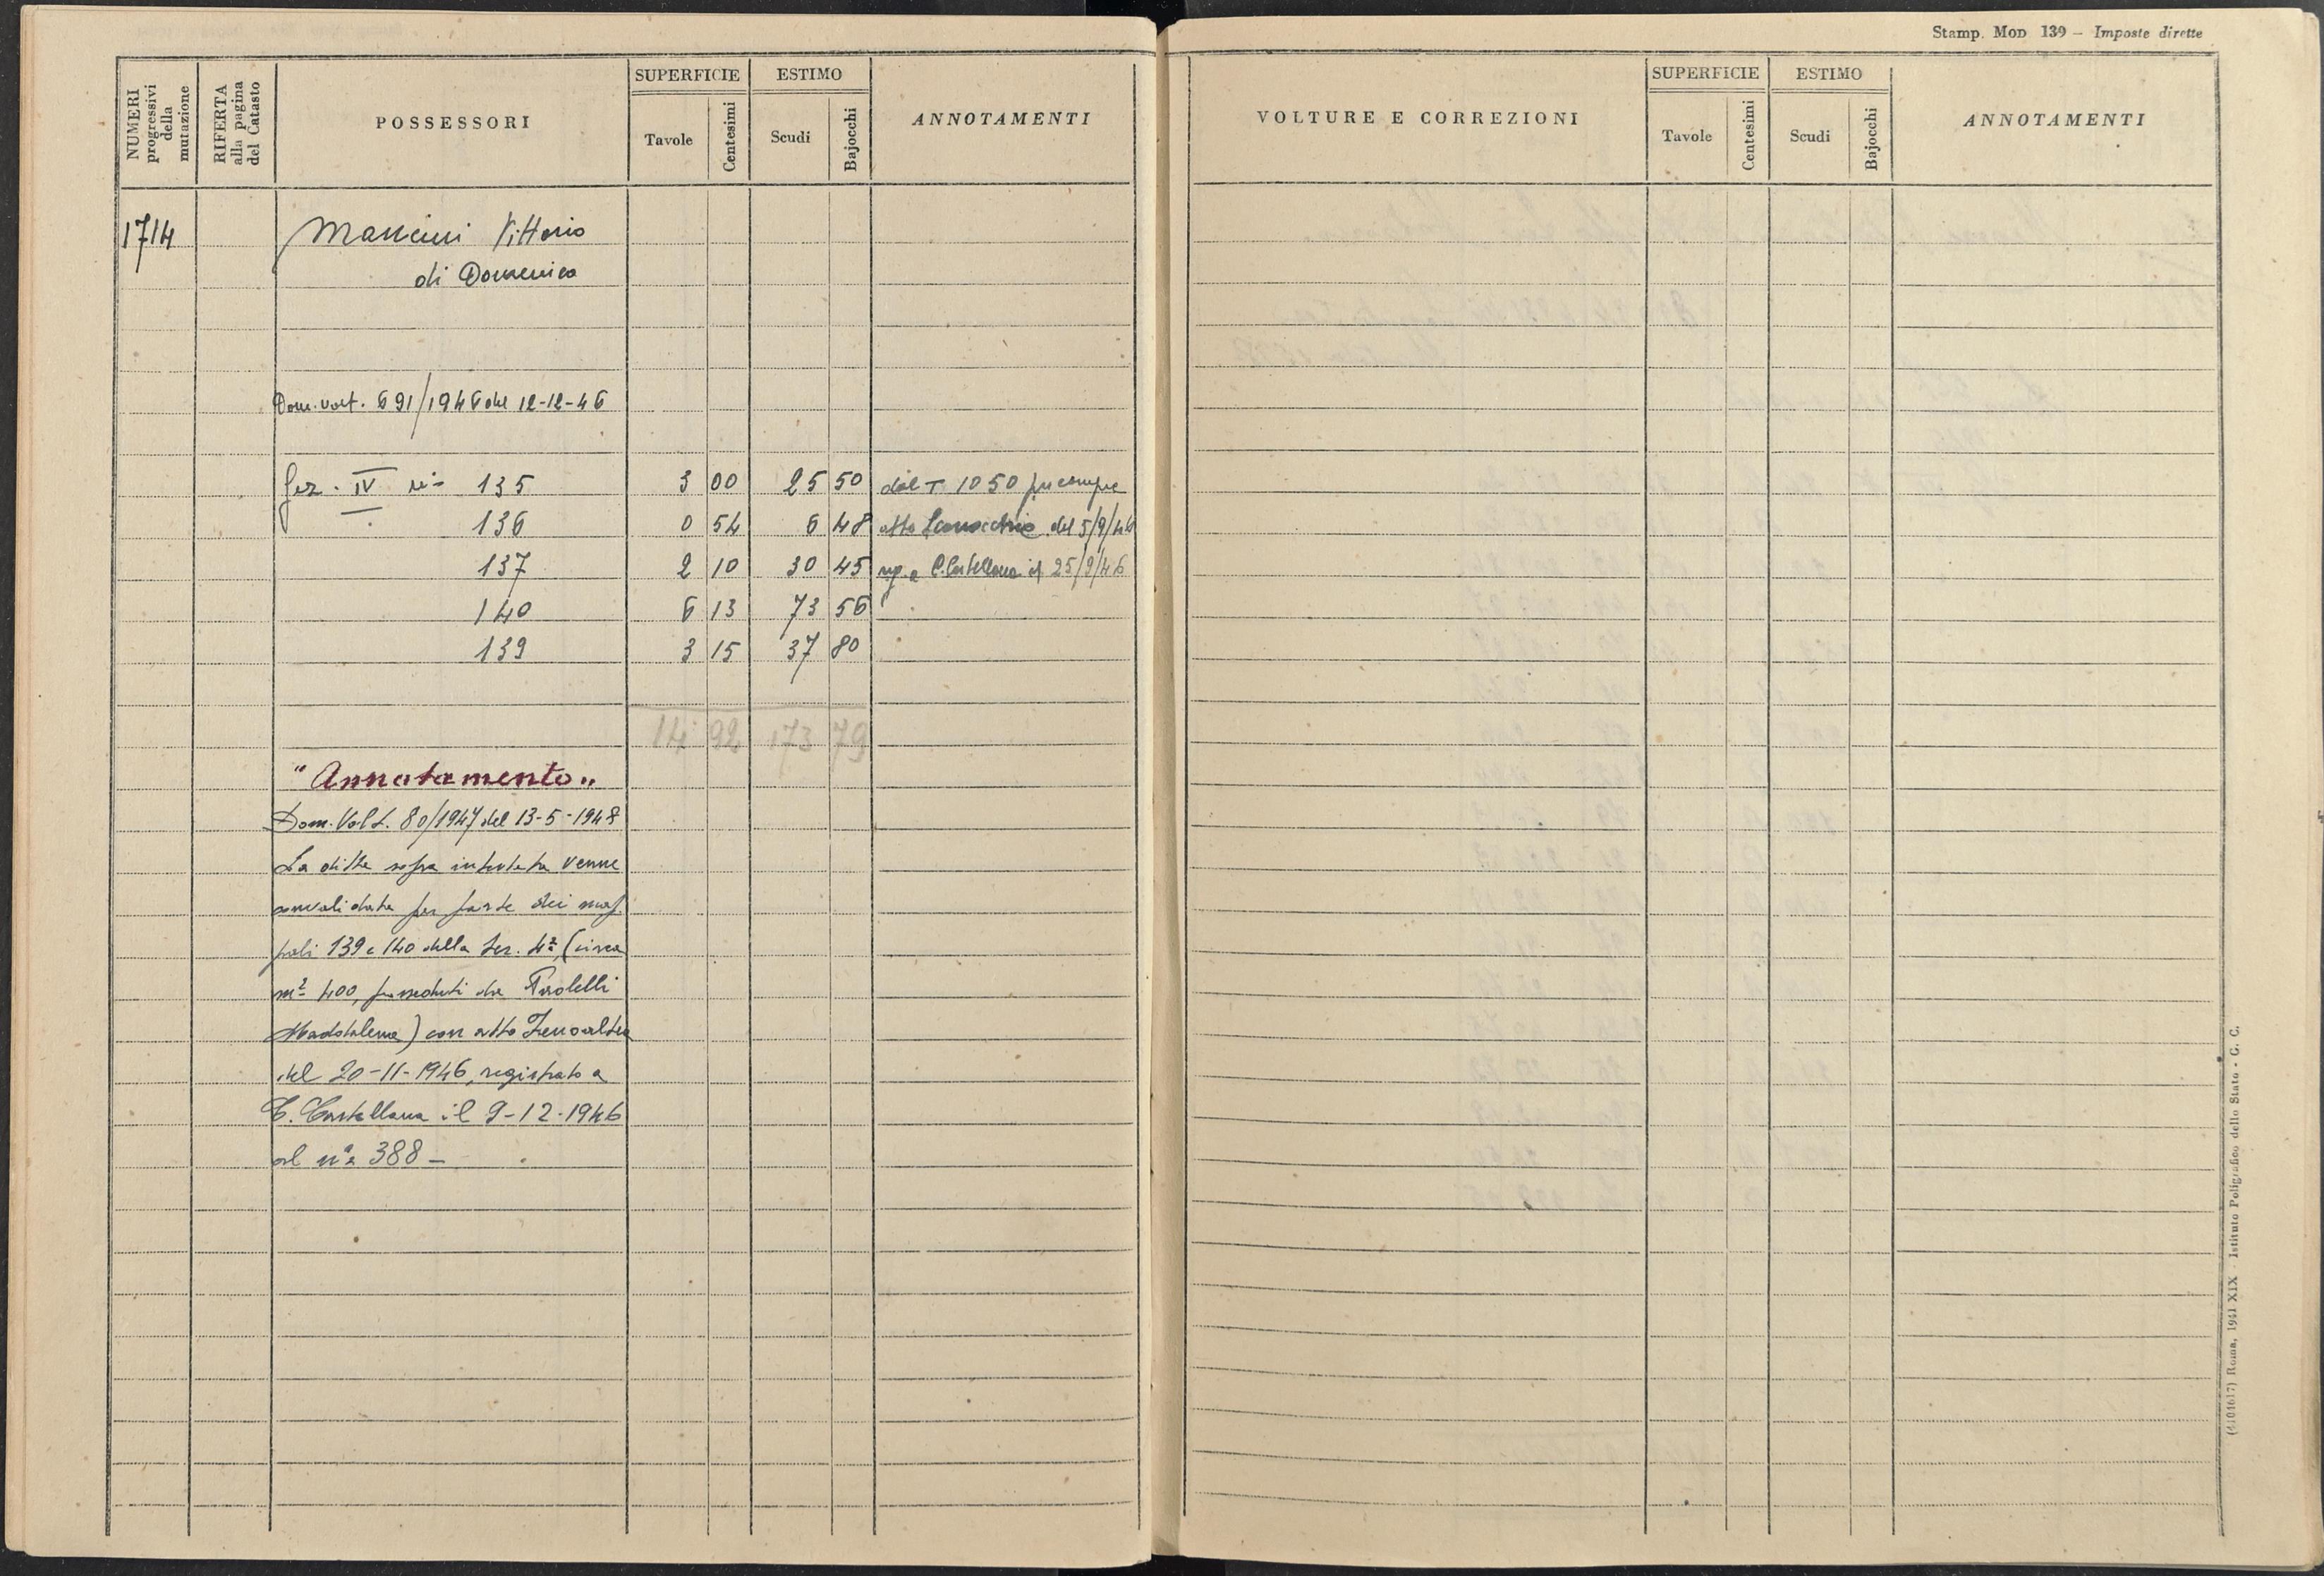 Stamp. Mod 139 — Imposte dirette
NUMERI progressivi della mutazione
RIFERTA alla pagina del Catasto
POSSESSORI
SUPERFICIE
Tavole
Centesimi
ESTIMO
Scudi
Bajocchi
ANNOTAMENTI
VOLTURE E CORREZIONI
SUPERFICIE
Tavole
Centesimi
ESTIMO
Scudi
Bajocchi
ANNOTAMENTI
1714 Mancini Vittorio
di Domenico
Dom. volt. 691/1946 del 12-12-46
Sez. IV 135 3 00 25 50 dal T 1050 per compre
136 0 54 6 48 atto del 5/9/46
137 2 10 30 45 reg. a C. Castellana il 25/9/46
140 6 13 73 56
139 3 15 37 80
14 92 173 79
"Annotamento"
Dom. Volt. 80/1947 del 13-5-1948
La ditta sopra intestata venne
convalidata per parte dei map
pali 139 e 140 della Sez. 4ª (circa
m² 400, posseduti da
Maddalena) con atto
del 20-11-1946, registrato a
C. Castellana il 9-12-1946
al n° 388 —
(4101617) Roma, 1941 XIX - Istituto Poligrafico dello Stato - G. C.